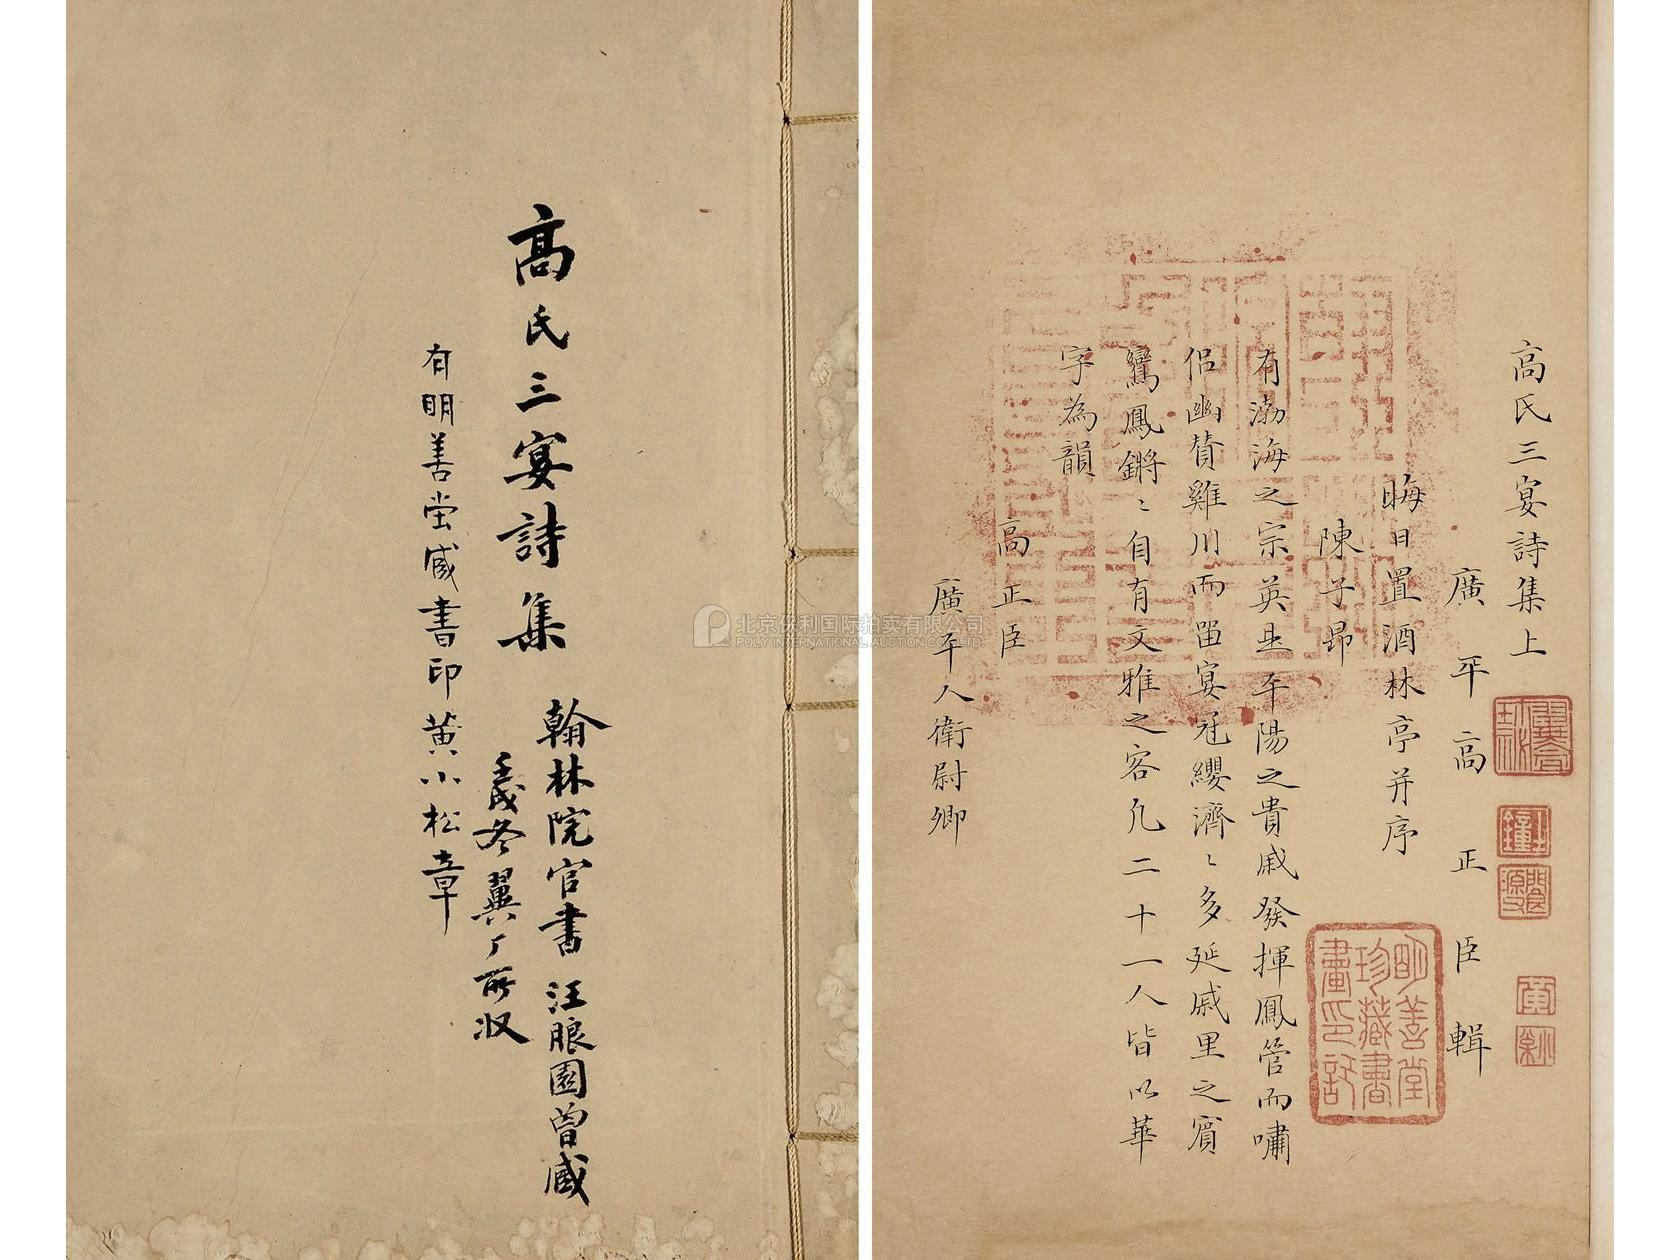 高氏三宴詩集
翰林院官書 汪閬園曾藏
壬戌冬翼厂所收
有明善堂藏書印黄小松章
高氏三宴詩集上
廣平高正臣輯
晦日置酒林亭并序
陳子昻
有渤海之宗英是平陽之貴戚發揮鳳管而嘯
侣幽贊雞川而留宴冠纓濟〻多延戚里之賓
鸞鳳鏘〻自有文雅之客凡二十一人皆以華
字為韻
高正臣
廣平人衛尉卿
明善堂
珍藏書
畫印記
北京保利国际拍卖有限公司
POLY INTERNATIONAL AUCTION CO.,LTD